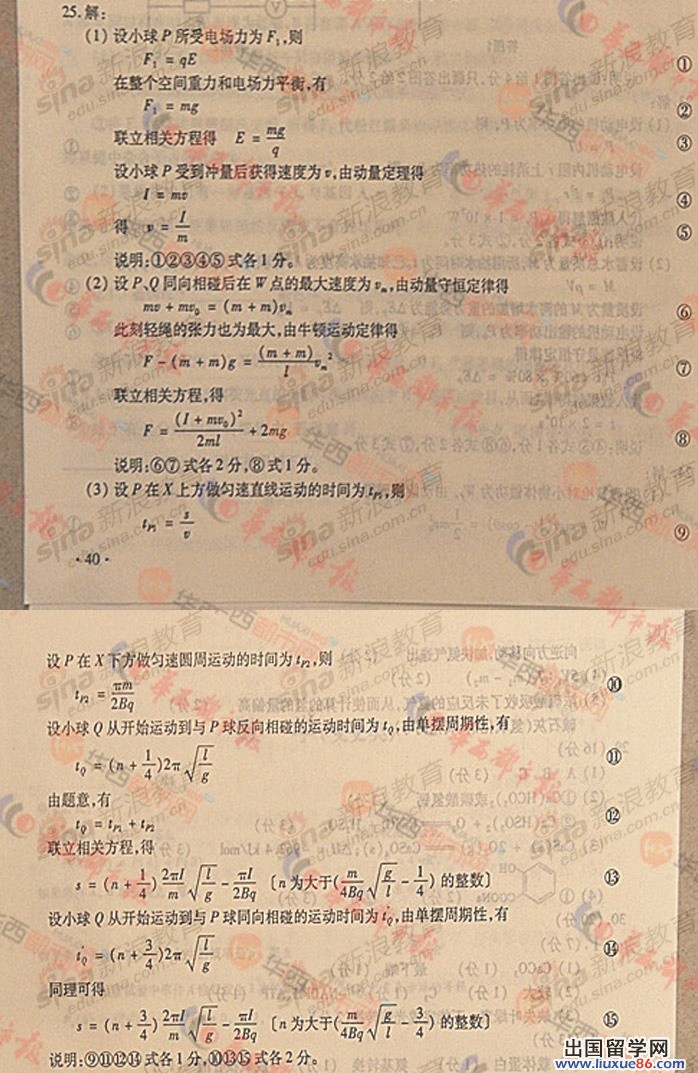 25.解:
(1) 设小球P所受电场力为F₁,则
F₁ = qE ①
在整个空间重力和电场力平衡,有
F₁ = mg ②
联立相关方程得 E = mg/q ③
设小球P受到冲量后获得速度为v,由动量定理得
I = mv ④
得 v = I/m ⑤
说明:①②③④⑤式各1分。
(2) 设P、Q同向相碰后在W点的最大速度为vₘ,由动量守恒定律得
mv + mv₀ = (m + m)vₘ ⑥
此刻轻绳的张力也为最大,由牛顿运动定律得
F - (m + m)g = (m + m)/l vₘ² ⑦
联立相关方程,得
F = (I + mv₀)²/2ml + 2mg ⑧
说明:⑥⑦式各2分,⑧式1分。
(3) 设P在X上方做匀速直线运动的时间为t_P1,则
t_P1 = s/v ⑨
·40·
设P在X下方做匀速圆周运动的时间为t_P2,则
t_P2 = πm/2Bq ⑩
设小球Q从开始运动到与P球反向相碰的运动时间为t_Q,由单摆周期性,有
t_Q = (n + 1/4)2π√(l/g) ⑪
由题意,有
t_Q = t_P1 + t_P2 ⑫
联立相关方程,得
s = (n + 1/4) 2πI/m √(l/g) - πI/2Bq 〔n为大于(m/4Bq √(g/l) - 1/4)的整数〕 ⑬
设小球Q从开始运动到与P球同向相碰的运动时间为t'_Q,由单摆周期性,有
t'_Q = (n + 3/4)2π√(l/g) ⑭
同理可得
s = (n + 3/4) 2πI/m √(l/g) - πI/2Bq 〔n为大于(m/4Bq √(g/l) - 3/4)的整数〕 ⑮
说明:⑨⑪⑫⑭式各1分,⑩⑬⑮式各2分。
出国留学网
www.liuxue86.com
sina新浪教育
edu.sina.com.cn
华西都市报